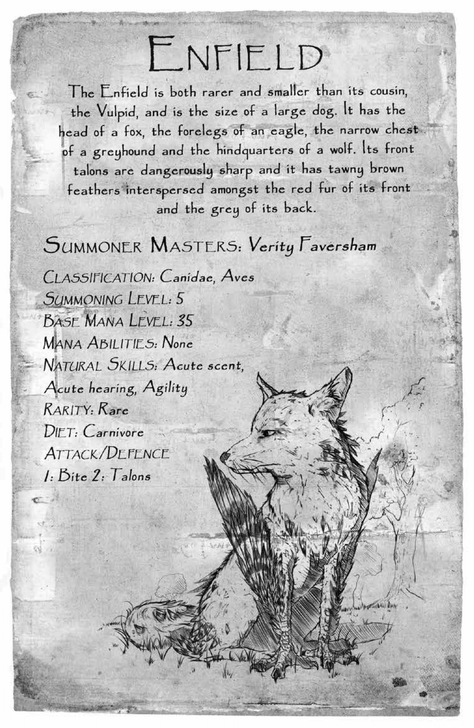 ENFIELD
The Enfield is both rarer and smaller than its cousin,
the Vulpid, and is the size of a large dog. It has the
head of a fox, the forelegs of an eagle, the narrow chest
of a greyhound and the hindquarters of a wolf. Its front
talons are dangerously sharp and it has tawny brown
feathers interspersed amongst the red fur of its front
and the grey of its back.
SUMMONER MASTERS: Verity Faversham
CLASSIFICATION: Canidae, Aves
SUMMONING LEVEL: 5
BASE MANA LEVEL: 35
MANA ABILITIES: None
NATURAL SKILLS: Acute scent,
Acute hearing, Agility
RARITY: Rare
DIET: Carnivore
ATTACK/DEFENCE
1: Bite 2: Talons